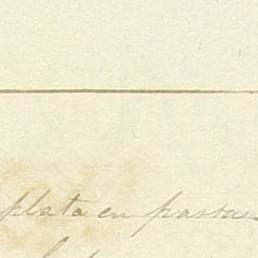 plata en pastas